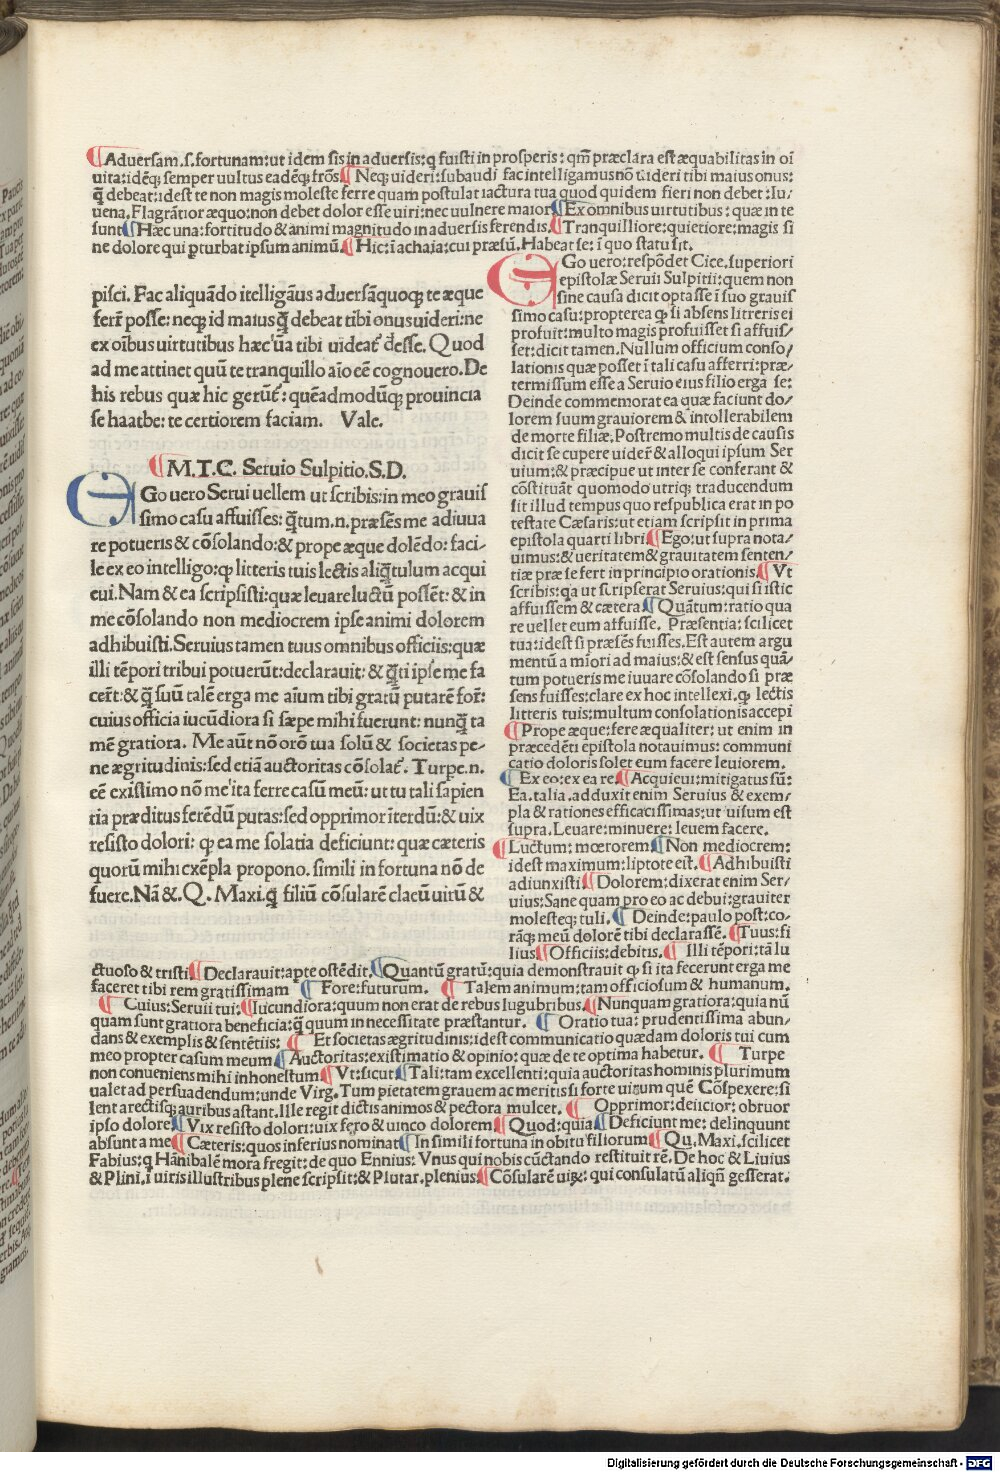 ¶Aduersam.s.fortunam:ut idem sis in aduersis:q fuisti in prosperis: qm̄ præclara est æquabilitas in oī
uita:idēq; semper uultus eadēq; frōs¶ Neq; uideri:subaudi fac intelligamus nō uideri tibi maius onus:
q̄ debeat:idest te non magis moleste ferre quam postulat iactura tua quod quidem fieri non debet:Iu-
uena.Flagrātior æquo:non debet dolor esse uiri:nec uulnere maior¶ Ex omnibus uirtutibus: quæ in te
sunt¶ Hæc una:fortitudo & animi magnitudo in aduersis ferendis.¶Tranquilliore:quietiore:magis si
ne dolore qui pturbat ipsum animū.¶ Hic:ī achaia:cui præsū.Habeat se:ī quo statu sit.
pisci. Fac aliquādo ītelligāus aduersāquoq; te æque
ferr̄ posse: neq; id maius q̄ debeat tibi onus uideri:ne
ex oībus uirtutibus hæc ūa tibi uideat̄ deesse. Quod
ad me attinet quū te tranquillo aīo eē cognouero. De
his rebus quæ hic gerūt̄: quēadmodūq; prouincia
se haatbe: te certiorem faciam. Vale.
¶M.T.C. Seruio Sulpitio.S.D.
EGo uero Serui uellem ut scribis:in meo grauis
simo casu affuisses: q̄tum.n.præsēs me adiuua
re potueris & cōsolando:& prope æque dolēdo: faci-
le ex eo intelligo:ꝙ litteris tuis lectis aliq̄tulum acqui
eui. Nam & ea scripsisti: quæ leuare luctū possēt: & in
me cōsolando non mediocrem ipse animi dolorem
adhibuisti. Seruius tamen tuus omnibus officiis:quæ
illi tēpori tribui potuerūt:declarauit: & q̄ti ipse me fa
ceret̄:& q̄ suū talē erga me aīum tibi gratū putarē forr̄:
cuius officia iucūdiora si sæpe mihi fuerunt: nunq̄ ta
mē gratiora. Me aūt nō orō tua solū & societas pe-
ne ægritudinis:sed etiā auctoritas cōsolat̄. Turpe.n.
eē existimo nō me ita ferre casū meū: ut tu tali sapien
tia præditus ferēdū putas:sed opprimor īterdū:& uix
resisto dolori: ꝙ ea me solatia deficiunt: quæ cæteris
quorū mihi exēpla propono. simili in fortuna nō de
fuere. Nā & .Q. Maxi.q̄ filiū cōsularē clarū uirū &
EGo uero:respōdet Cice.superiori
epistolæ Seruii Sulpitii:quem non
sine causa dicit optasse ī suo grauis
simo casu:propterea ꝙ si absens litreris ei
profuit:multo magis profuisset si affuis/
set:dicit tamen.Nullum officium conso/
lationis quæ posset ī tali casu afferri:præ-
termissum esse a Seruio eius filio erga se:
Deinde commemorat ea quæ faciunt do-
lorem suum grauiorem & intollerabilem
de morte filiæ.Postremo multis de causis
dicit se cupere uider̄ & alloqui ipsum Ser
uium:& præcipue ut inter se conferant &
cōstituāt quomodo utriq; traducendum
sit illud tempus quo respublica erat in po
testate Cæsaris:ut etiam scripsit in prima
epistola quarti libri¶Ego:ut supra nota-
uimus:& ueritatem & grauitatem senten/
tiæ præ se fert in principio orationis.¶ Vt
scribis:qa ut scripserat Seruius:qui si istic
affuissem & cætera¶Quātum:ratio qua
re uellet eum affuisse. Præsentia:scilicet
tua:idest si præsēs fuisses.Est autem argu
mentū a mīori ad maius:& est sensus quā/
tum potueris me iuuare cōsolando si præ
sens fuisses:clare ex hoc intellexi.ꝙ lectis
litteris tuis:multum consolationis accepi
¶Prope æque:fere æqualiter: ut enim in
præcedēti epistola notauimus: communi
catio doloris solet eum facere leuiorem.
¶ Ex eo:ex ea re¶Acquieui:mitigatus sū:
Ea.talia.adduxit enim Seruius & exem-
pla & rationes efficacissimas:ut uisum est
supra.Leuare:minuere:leuem facere.
¶Luctum: mœrorem¶Non mediocrem:
idest maximum:liptote eit.¶Adhibuisti
adiunxisti¶Dolorem:dixerat enim Ser-
uius:Sane quam pro eo ac debui:grauiter
molesteq; tuli.¶ Deinde:paulo post:co-
rāq; meū dolorē tibi declarassē.¶Tuus:fi
lius¶Officiis:debitis.¶ Illi tēpori:tā lu
ctuoso & tristi¶Declarauit:apte ostēdit.¶Quantū gratū:quia demonstrauit ꝙ si ita fecerunt erga me
faceret tibi rem gratissimam ¶ Fore:futurum. ¶ Talem animum:tam officiosum & humanum.
¶ Cuius:Seruii tui:¶Iucundiora:quum non erat de rebus lugubribus.¶Nunquam gratiora:quia nū
quam sunt gratiora beneficia:q̄ quum in necessitate præstantur. ¶ Oratio tua: prudentissima abun/
dans & exemplis & sentētiis: ¶ Et societas ægritudinis:idest communicatio quædam doloris tui cum
meo propter casum meum¶Auctoritas:existimatio & opinio: quæ de te optima habetur. ¶ Turpe
non conueniens mihi inhonestum¶Vt:sicut¶Tali:tam excellenti:quia auctoritas hominis plurimum
ualet ad persuadendum:unde Virg.Tum pietatem grauem ac meritis si forte uirum quem Cōspexere:si
lent arectisq; auribus astant.Ille regit dictis animos & pectora mulcet. ¶ Opprimor:deiicior: obruor
ipso dolore¶Vix resisto dolori:uix fero & uinco dolorem¶Quod:quia¶Deficiunt me: delinquunt
absunt a me¶Cæteris:quos inferius nominat¶In simili fortuna in obitu filiorum¶Qu.Maxi.scilicet
Fabius:q Hānibalē mora fregit: de quo Ennius: Vnus qui nobis cūctando restituit rē. De hoc & Liuius
& Plini.ī uiris illustribus plene scripsit:& Plutar.plenius¶Cōsularē uirū: qui consulatū aliqn̄ gesserat.
Digitalisierung gefördert durch die Deutsche Forschungsgemeinschaft - DFG